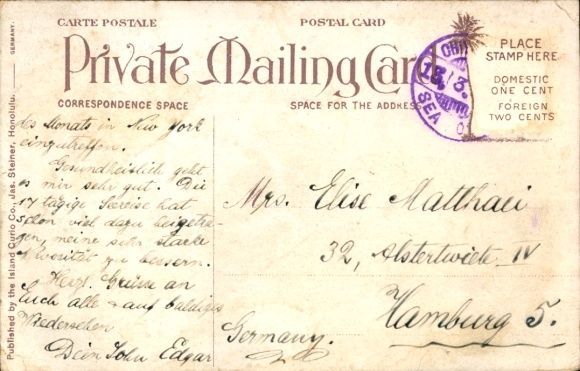 CARTE POSTALE
POSTAL CARD
Private Mailing Card
CORRESPONDENCE SPACE
SPACE FOR THE ADDRESS
PLACE
STAMP HERE
DOMESTIC
ONE CENT
FOREIGN
TWO CENTS
15/3.
SEA
GERMANY.
Published by the Island Curio Co., Jas. Steiner, Honolulu.
des Monats in New York
einzutreffen.
Gesundheitlich geht
es mir sehr gut. Die
17 tägige Seereise hat
schon viel dazu beigetra-
gen, meine sehr starke
zu bessern.
Herzl. Grüsse an
Euch alle & auf baldiges
Wiedersehen
Dein Sohn Edgar
Mrs. Elise Matthaei
32, Alstertwiete IV
Hamburg 5.
Germany.